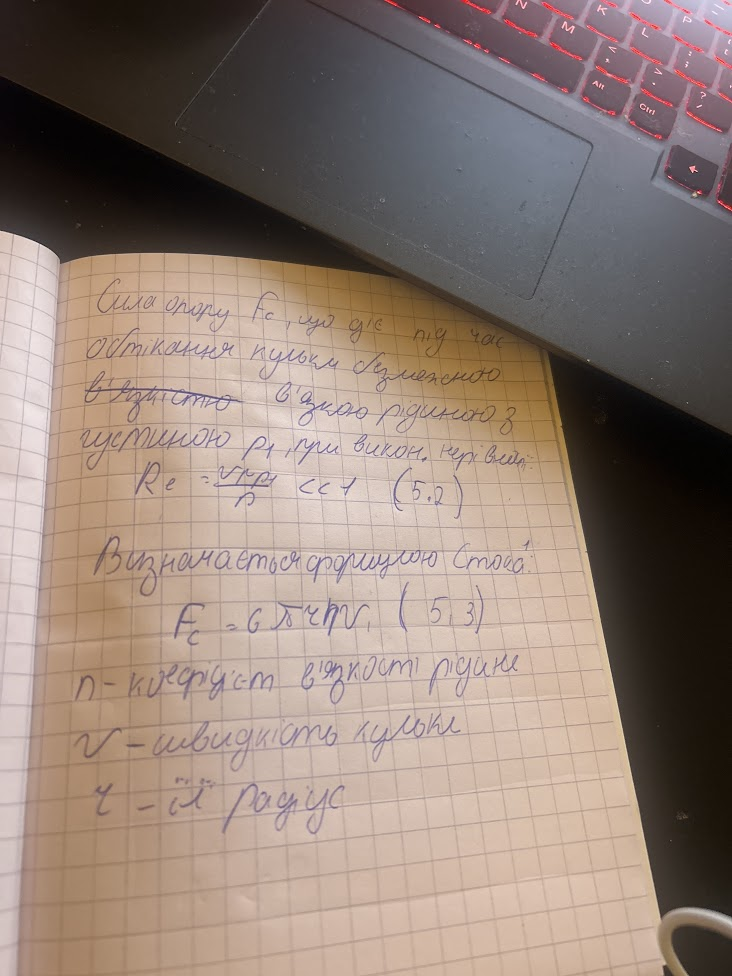 N
M
K
L
P
<
,
>
.
:
;
?
/
Alt
Ctrl
←
Сила опору Fc, що діє під час
обтікання кульки безмежною
в'язкістю в'язкою рідиною з
густиною ρ1, при викон. нерівності:
Re = vrρ1/η << 1 (5.2)
Визначається формулою Стокса:
Fc = 6πrηv, (5.3)
η - коефіцієт в'язкості рідини
v - швидкість кульки
r - її радіус